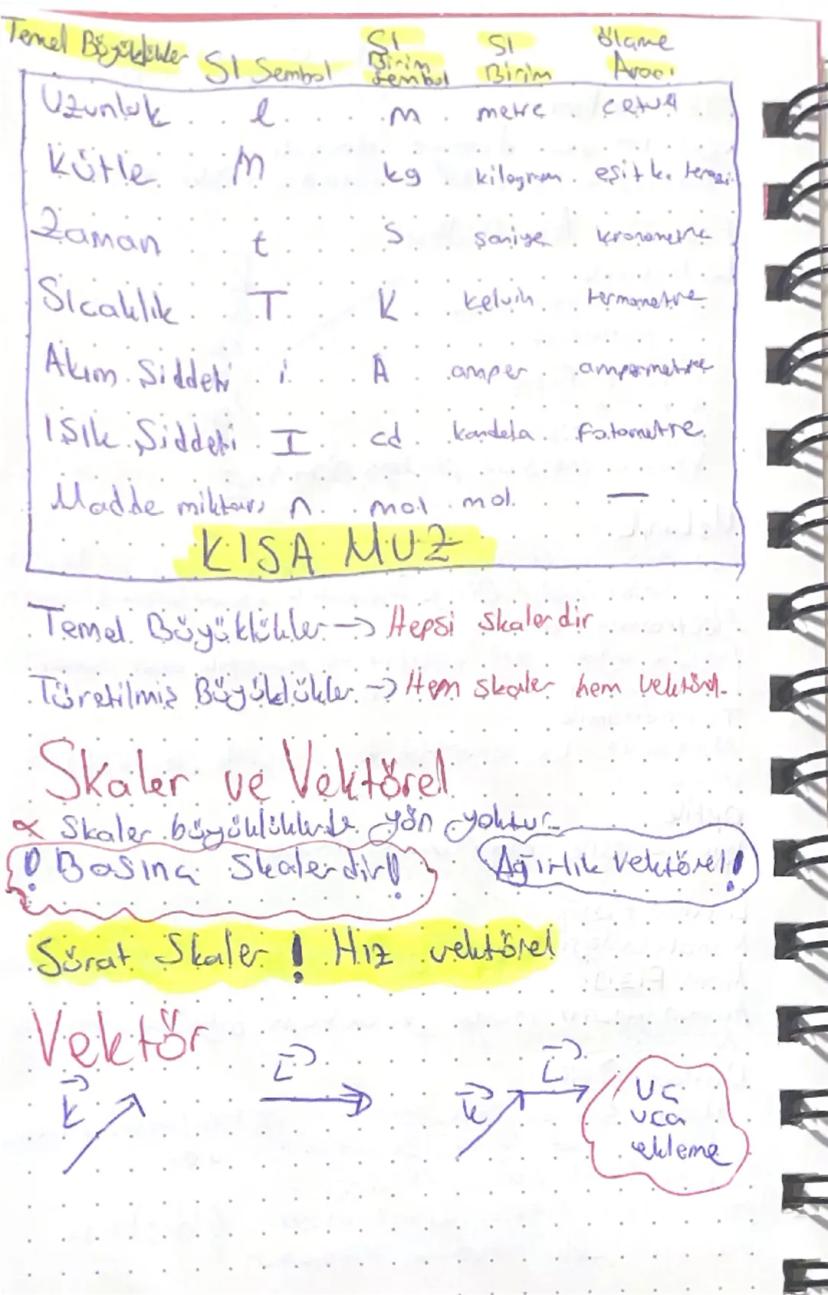 Temel Büyüklükler SI Sembol SI Birim Sembol SI Birim ölçme Aracı
Uzunluk l m metre cetvel
Kütle M kg kilogram eşit k. terazi
Zaman t s saniye kronometre
Sıcaklık T K kelvin termometre
Akım Şiddeti i A amper ampermetre
Işık Şiddeti I cd kandela fotometre
Madde miktarı n mol mol —
KISA MUZ
Temel Büyüklükler → Hepsi skalerdir
Türetilmiş Büyüklükler → Hem skaler hem vektörel
Skaler ve Vektörel
∝ Skaler büyüklüklerde yön yoktur
! Basınç Skalerdir! Ağırlık Vektörel!
Sürat Skaler ! Hız vektörel
Vektör
K L K L
Uç
uca
ekleme